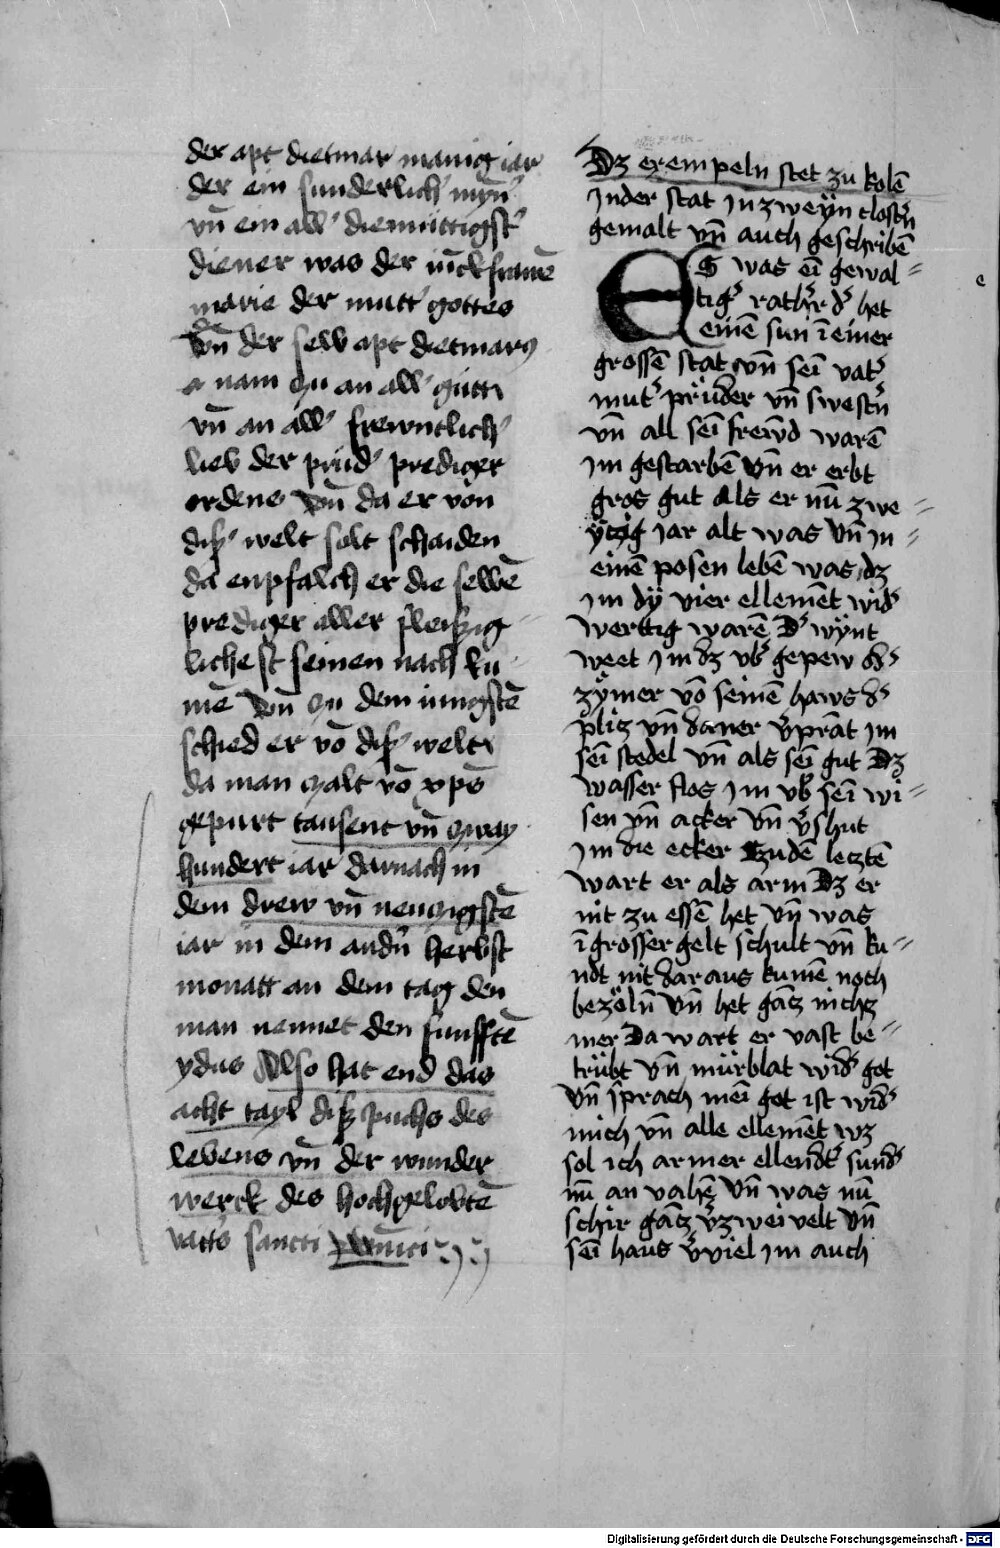 der apt dietmar manig iar
der ein sunderlich' myn'
vn̄ ein all' diemüttigst'
diener was der iūckfrawē
marie der mutt' gottes
Vn̄ der selb apt dietmarꝯ
a nam zu an all' gütti
vn̄ an all' frewntlich'
lieb der prüd' prediger
ordens Vn̄ da er von
diß' welt solt schaiden
da enpfalch er die selbē
prediger aller fleißig
lichest seinen nach ku-
mē Vn̄ zu dem iungstē
schied er vō diß' welt
da man zalt vō xpō
gepurt tausent vn̄ zway
hundert iar darnach in
dem drew vn̄ neunzigstē
iar in dem andn̄ herbst
monatt an dem tag den
man nennet den funfftē
ydus Also hat end das
acht tayl diß puchs des
lebens vn̄ der wunder
werck des hochgelobtē
vatt's sancti
Dz exempeln stet zu kolē
Jn der stat Jn zweÿn clostn̄
gemalt vn̄ auch geschribē
ES was eī gewal=
tig' rath'r d' het
einē sun ī einer
grossē stat vn̄ seī vat'
mut' prüder vn̄ swestn̄
vn̄ all seī frewd warē
Jm gestarbē Vn̄ er erbt
gros gut Als er nū zwe=
ÿtzig jar alt was Vn̄ jn=
einē posen lebē was dz
Jm dÿ vier ellemēt wid'
werttig warē D' wÿnt
weet Jm dz vb' gepew d'
zÿmer vō seinē haws d'
plitz vn̄ daner v'prāt Jm
seī stedel vn̄ als seī gut Dz
wasser flos Jm vb' seī wi=
sen vn̄ acker Vn̄ v'shut
Jm die ecker Zudē letztē
wart er als arm Dz er
nit zu essē het Vn̄ was
ī grosser gelt schult vn̄ ku=
ndt nit dar aus kumē noch
bezöln̄ Vn̄ het gātz nichtz
mer Da wart er vast be=
trübt vn̄ mürblat wid' got
Vn̄ sprach meī got ist wid'
mich vn̄ alle ellemēt wz
sol ich armer ellendt' sund'
nū an vahē Vn̄ was nū
schir gātz v'zwei velt Vn̄
seī haus v'viel jm auch
Digitalisierung gefördert durch die Deutsche Forschungsgemeinschaft - DFG